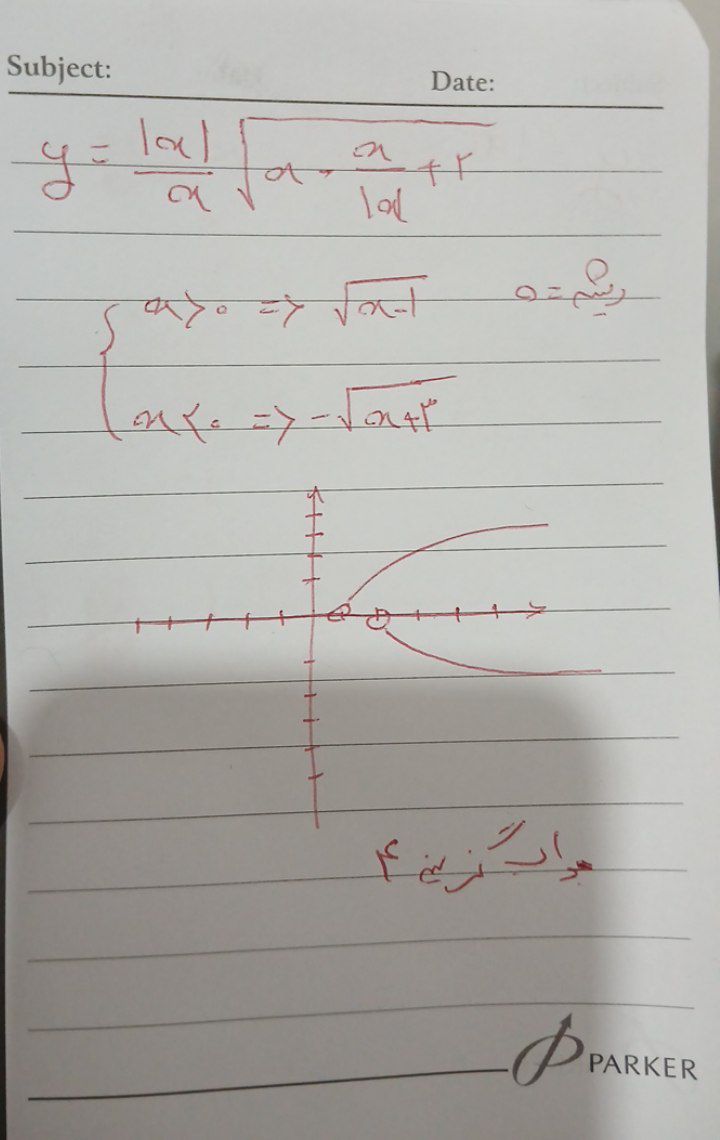 Subject:
Date:
y = |x|/x √(x - x/|x| + ۲)
x > 0 => √(x-1) ریشه = 0
x < 0 => -√(x+۳)
جواب گزینه ۴
PARKER